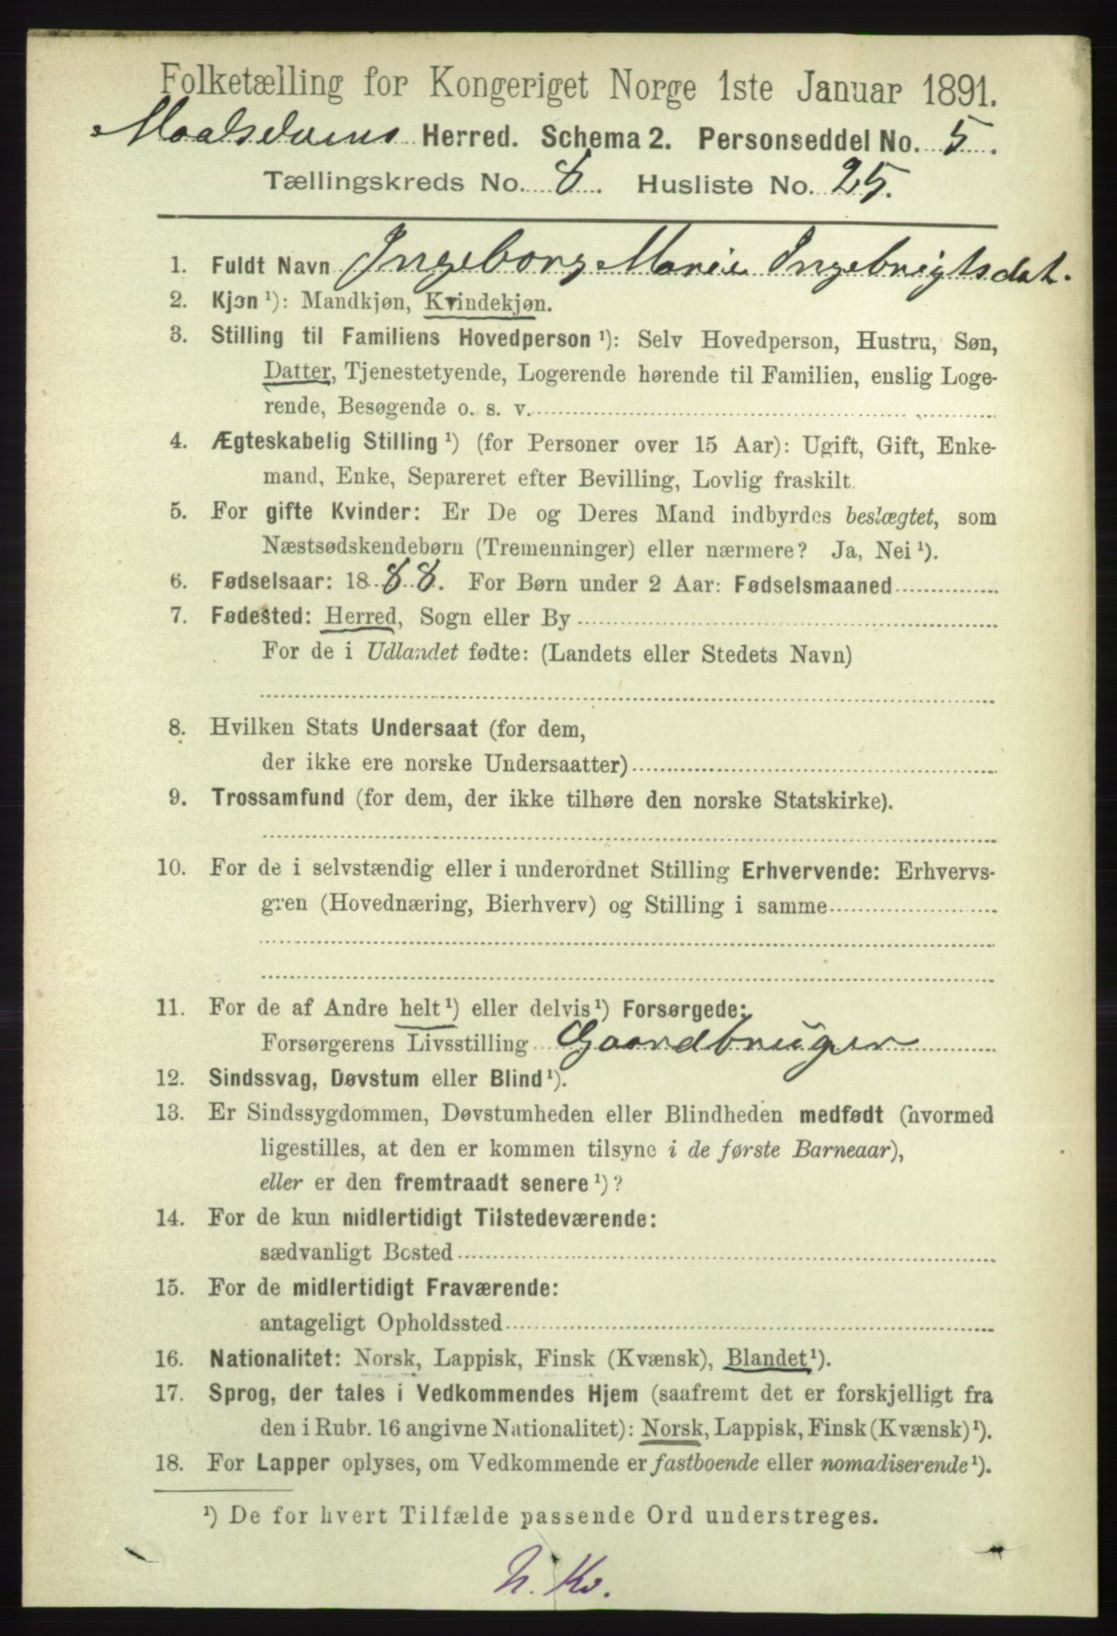 Folketælling for Kongeriget Norge 1ste Januar 1891.
Maalselvens Herred. Schema 2. Personseddel No. 5.
Tællingskreds No. 8. Husliste No. 25.
1. Fuldt Navn Ingeborg Marie Ingebrigtsdat.
2. Kjøn ¹): Mandkjøn, Kvindekjøn.
3. Stilling til Familiens Hovedperson ¹): Selv Hovedperson, Hustru, Søn,
Datter, Tjenestetyende, Logerende hørende til Familien, enslig Loge-
rende, Besøgende o. s. v.
4. Ægteskabelig Stilling ¹) (for Personer over 15 Aar): Ugift, Gift, Enke-
mand, Enke, Separeret efter Bevilling, Lovlig fraskilt
5. For gifte Kvinder: Er De og Deres Mand indbyrdes beslægtet, som
Næstsødskendebørn (Tremenninger) eller nærmere? Ja, Nei ¹).
6. Fødselsaar: 1888. For Børn under 2 Aar: Fødselsmaaned
7. Fødested: Herred, Sogn eller By
For de i Udlandet fødte: (Landets eller Stedets Navn)
8. Hvilken Stats Undersaat (for dem,
der ikke ere norske Undersaatter)
9. Trossamfund (for dem, der ikke tilhøre den norske Statskirke).
10. For de i selvstændig eller i underordnet Stilling Erhvervende: Erhvervs-
gren (Hovednæring, Bierhverv) og Stilling i samme
11. For de af Andre helt ¹) eller delvis ¹) Forsørgede:
Forsørgerens Livsstilling Gaardbruger
12. Sindssvag, Døvstum eller Blind ¹).
13. Er Sindssygdommen, Døvstumheden eller Blindheden medfødt (hvormed
ligestilles, at den er kommen tilsyne i de første Barneaar),
eller er den fremtraadt senere ¹)?
14. For de kun midlertidigt Tilstedeværende:
sædvanligt Bosted
15. For de midlertidigt Fraværende:
antageligt Opholdssted
16. Nationalitet: Norsk, Lappisk, Finsk (Kvænsk), Blandet ¹).
17. Sprog, der tales i Vedkommendes Hjem (saafremt det er forskjelligt fra
den i Rubr. 16 angivne Nationalitet): Norsk, Lappisk, Finsk (Kvænsk) ¹).
18. For Lapper oplyses, om Vedkommende er fastboende eller nomadiserende ¹).
¹) De for hvert Tilfælde passende Ord understreges.
N. Kv.